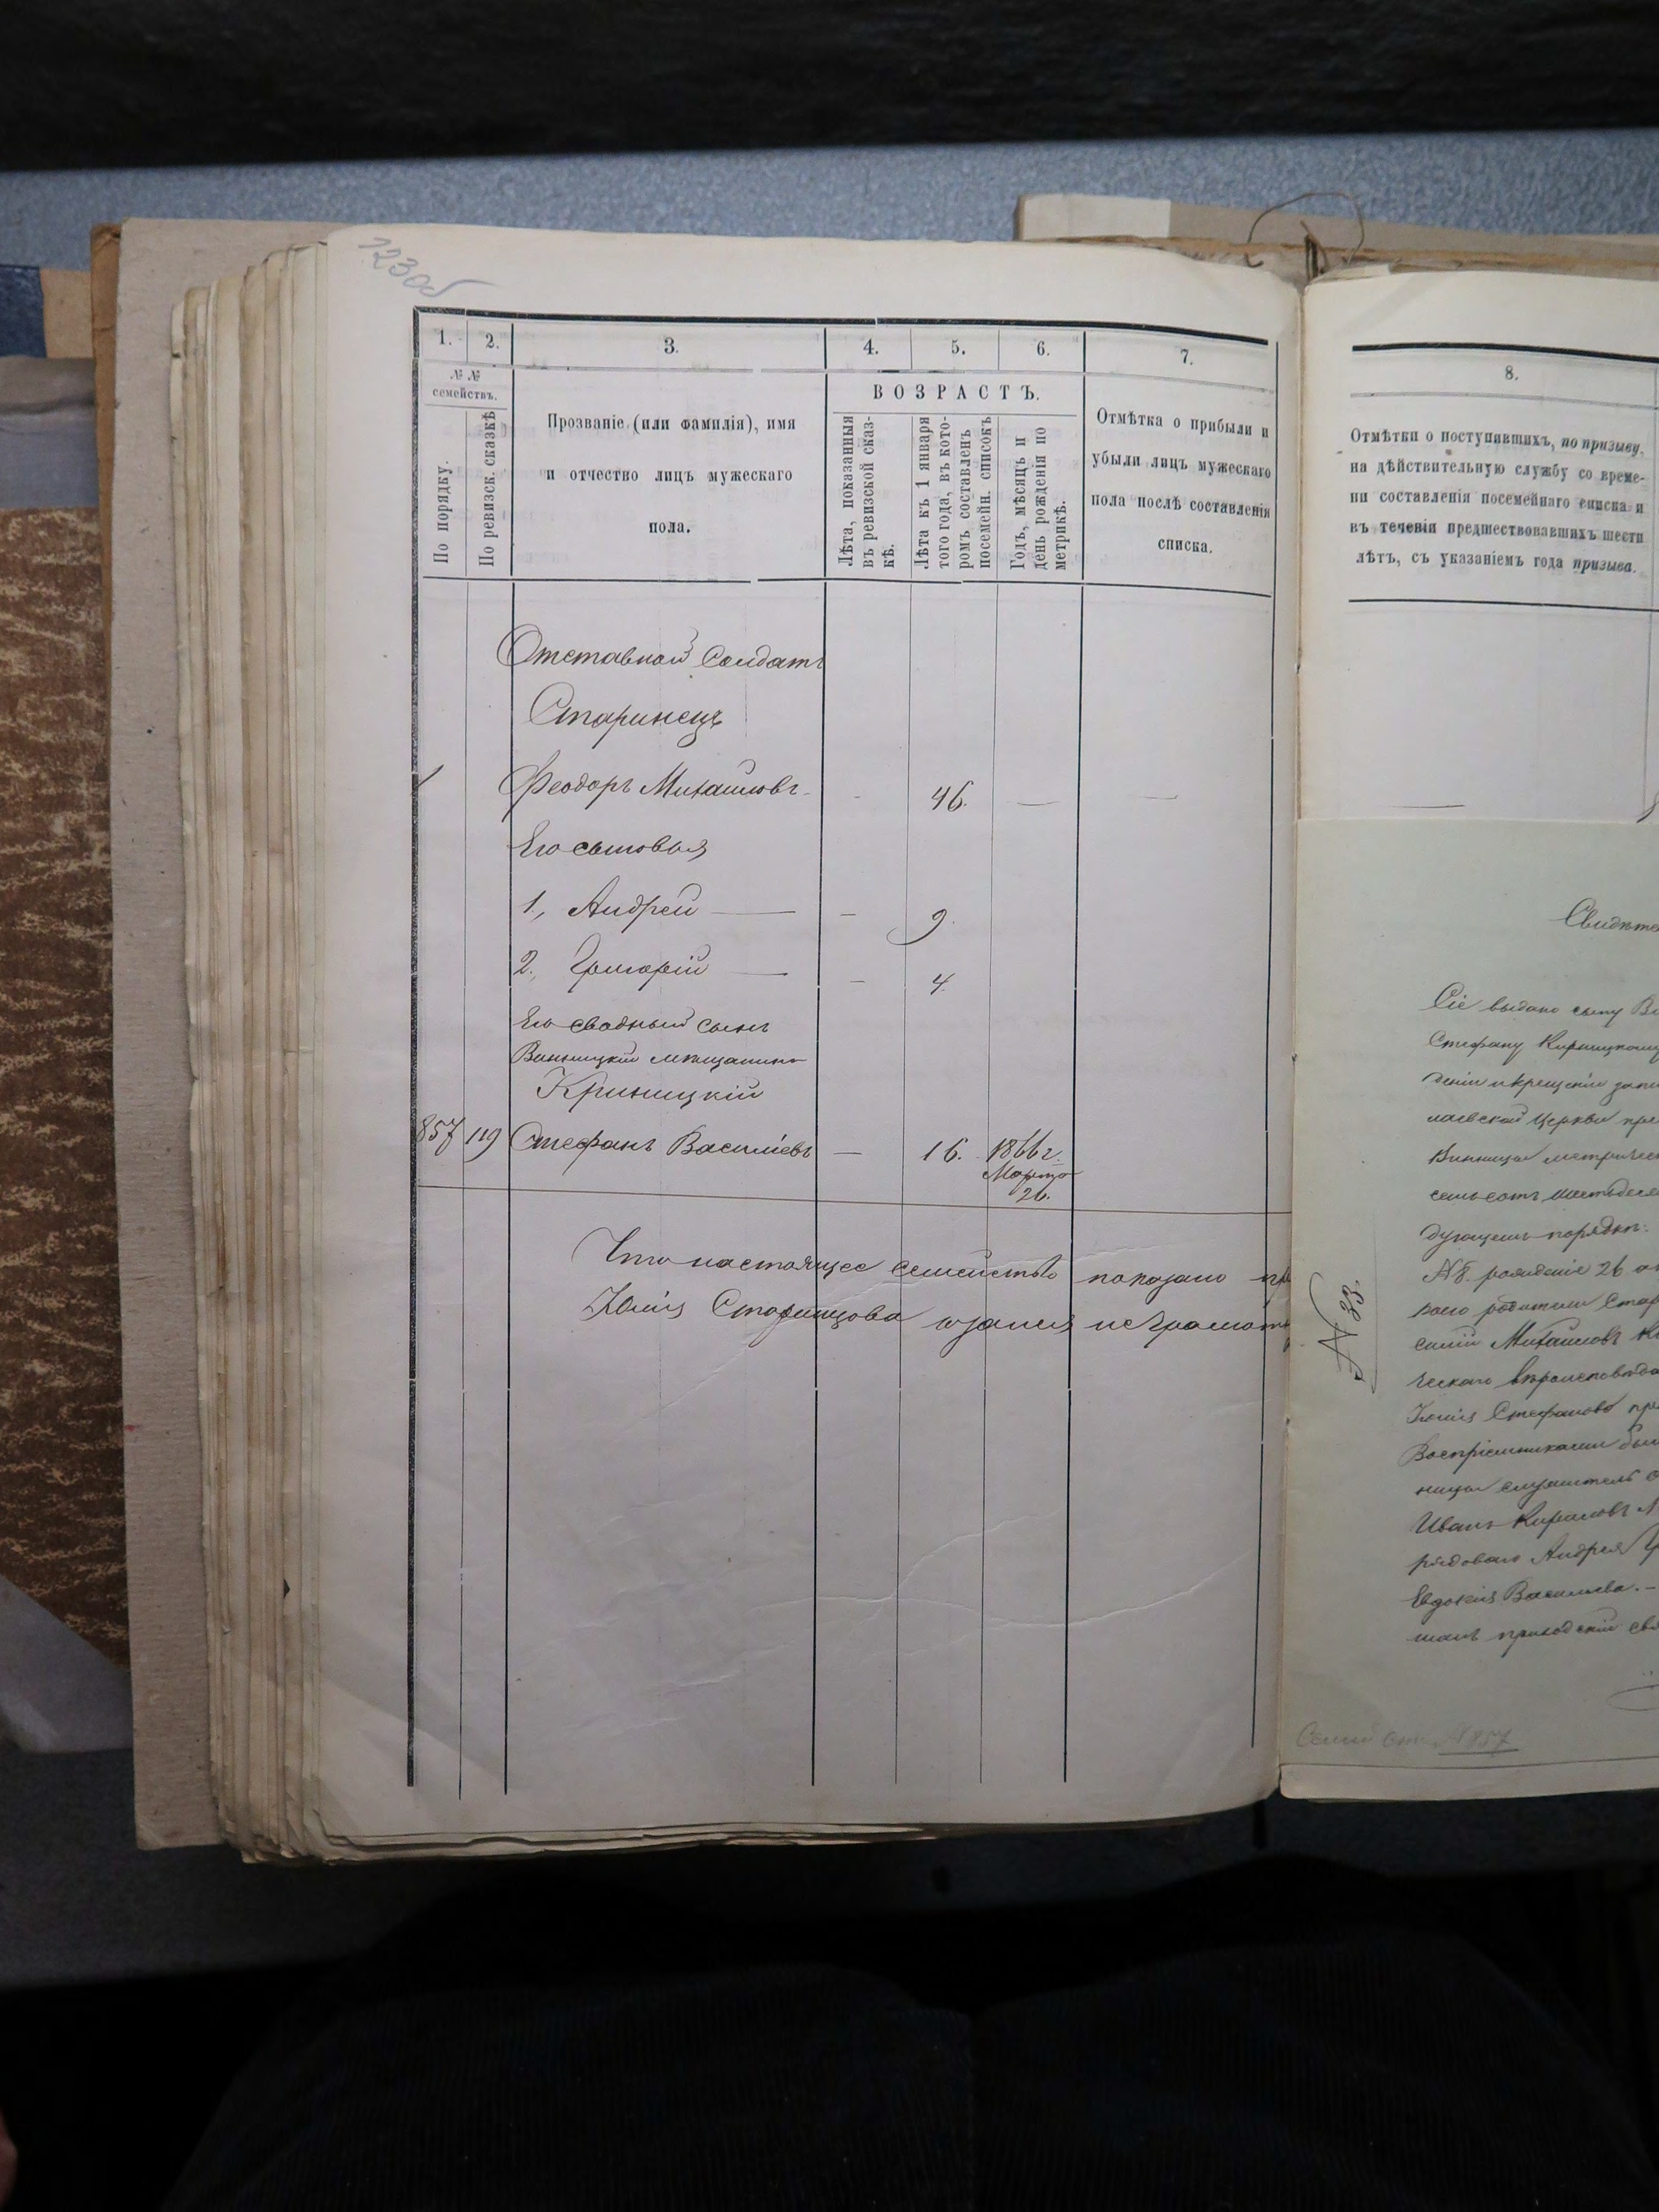 723об
1. 2. 3. 4. 5. 6. 7.
№ №
семействъ.
По порядку.
По ревизск. сказкѣ
Прозваніе (или фамилія), имя
и отчество лицъ мужескаго
пола.
ВОЗРАСТЪ.
Лѣта, показанныя
въ ревизской сказ-
кѣ.
Лѣта къ 1 января
того года, въ кото-
ромъ составленъ
посемейн. списокъ
Годъ, мѣсяцъ и
день рожденія по
метрикѣ.
Отмѣтка о прибыли и
убыли лицъ мужескаго
пола послѣ составленія
списка.
Отставной Солдатъ
Старинецъ
Феодоръ Михайловъ - - 46. — —
Его сыновья
1., Андрей — - 9.
2., Григорій — - 4.
Его сводный сынъ
Винницкій мѣщанинъ
Криницкій
857 119 Стефанъ Васильевъ — 16. 1866 г.
Марта
26.
Что настоящее семейство показано
Юлія Старинцова неграмотн
8.
Отмѣтки о поступившихъ, по призыву,
на дѣйствительную службу со време-
ни составленія посемейнаго списка и
въ теченіи предшествовавшихъ шести
лѣтъ, съ указаніемъ года призыва.
Свидѣте
Сіе выдано сыну Ви
Стефану Криницкому
деніи и крещеніи запи
лаевской Церкви при
Винницы метричес
семьсотъ шестьдеся
дующемъ порядкѣ:
№ 8. рожденіе 26
№ 33.
его родители
силій Михайловъ К
ческаго вѣроисповѣда
Юлія Стефанова пр
Воспріемниками бы
ницы служитель
Иванъ Кириловъ
рядоваго Андрея
Евдокія Васильева. —
приходскій св
Семей. спис. № 857